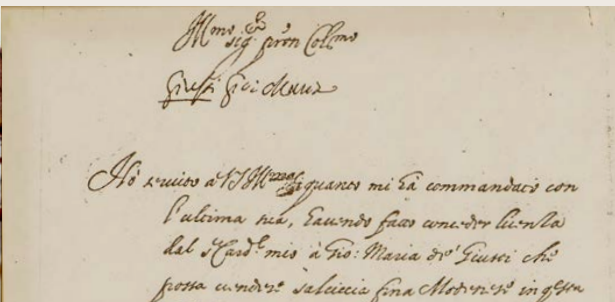 Ill.mo et
sig.r pron Coll.mo
Ho servito a V S Ill.ma di quanto mi hà commandato con
l'ultima sua, havendo fatto conceder licenza
dal S.r Card.l mio à Gio: Maria de' Giusti che
possa vendere salciccia fina Modenese in q.esta